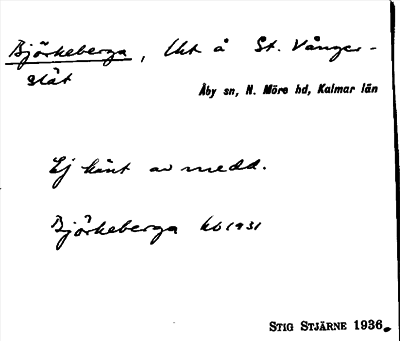 Björkeberga, Lht å St. Vånger-
slät
Åby sn, N. Möre hd, Kalmar län
Ej känt av medd.
Björkeberga kb 1931
STIG STJÄRNE 1936.